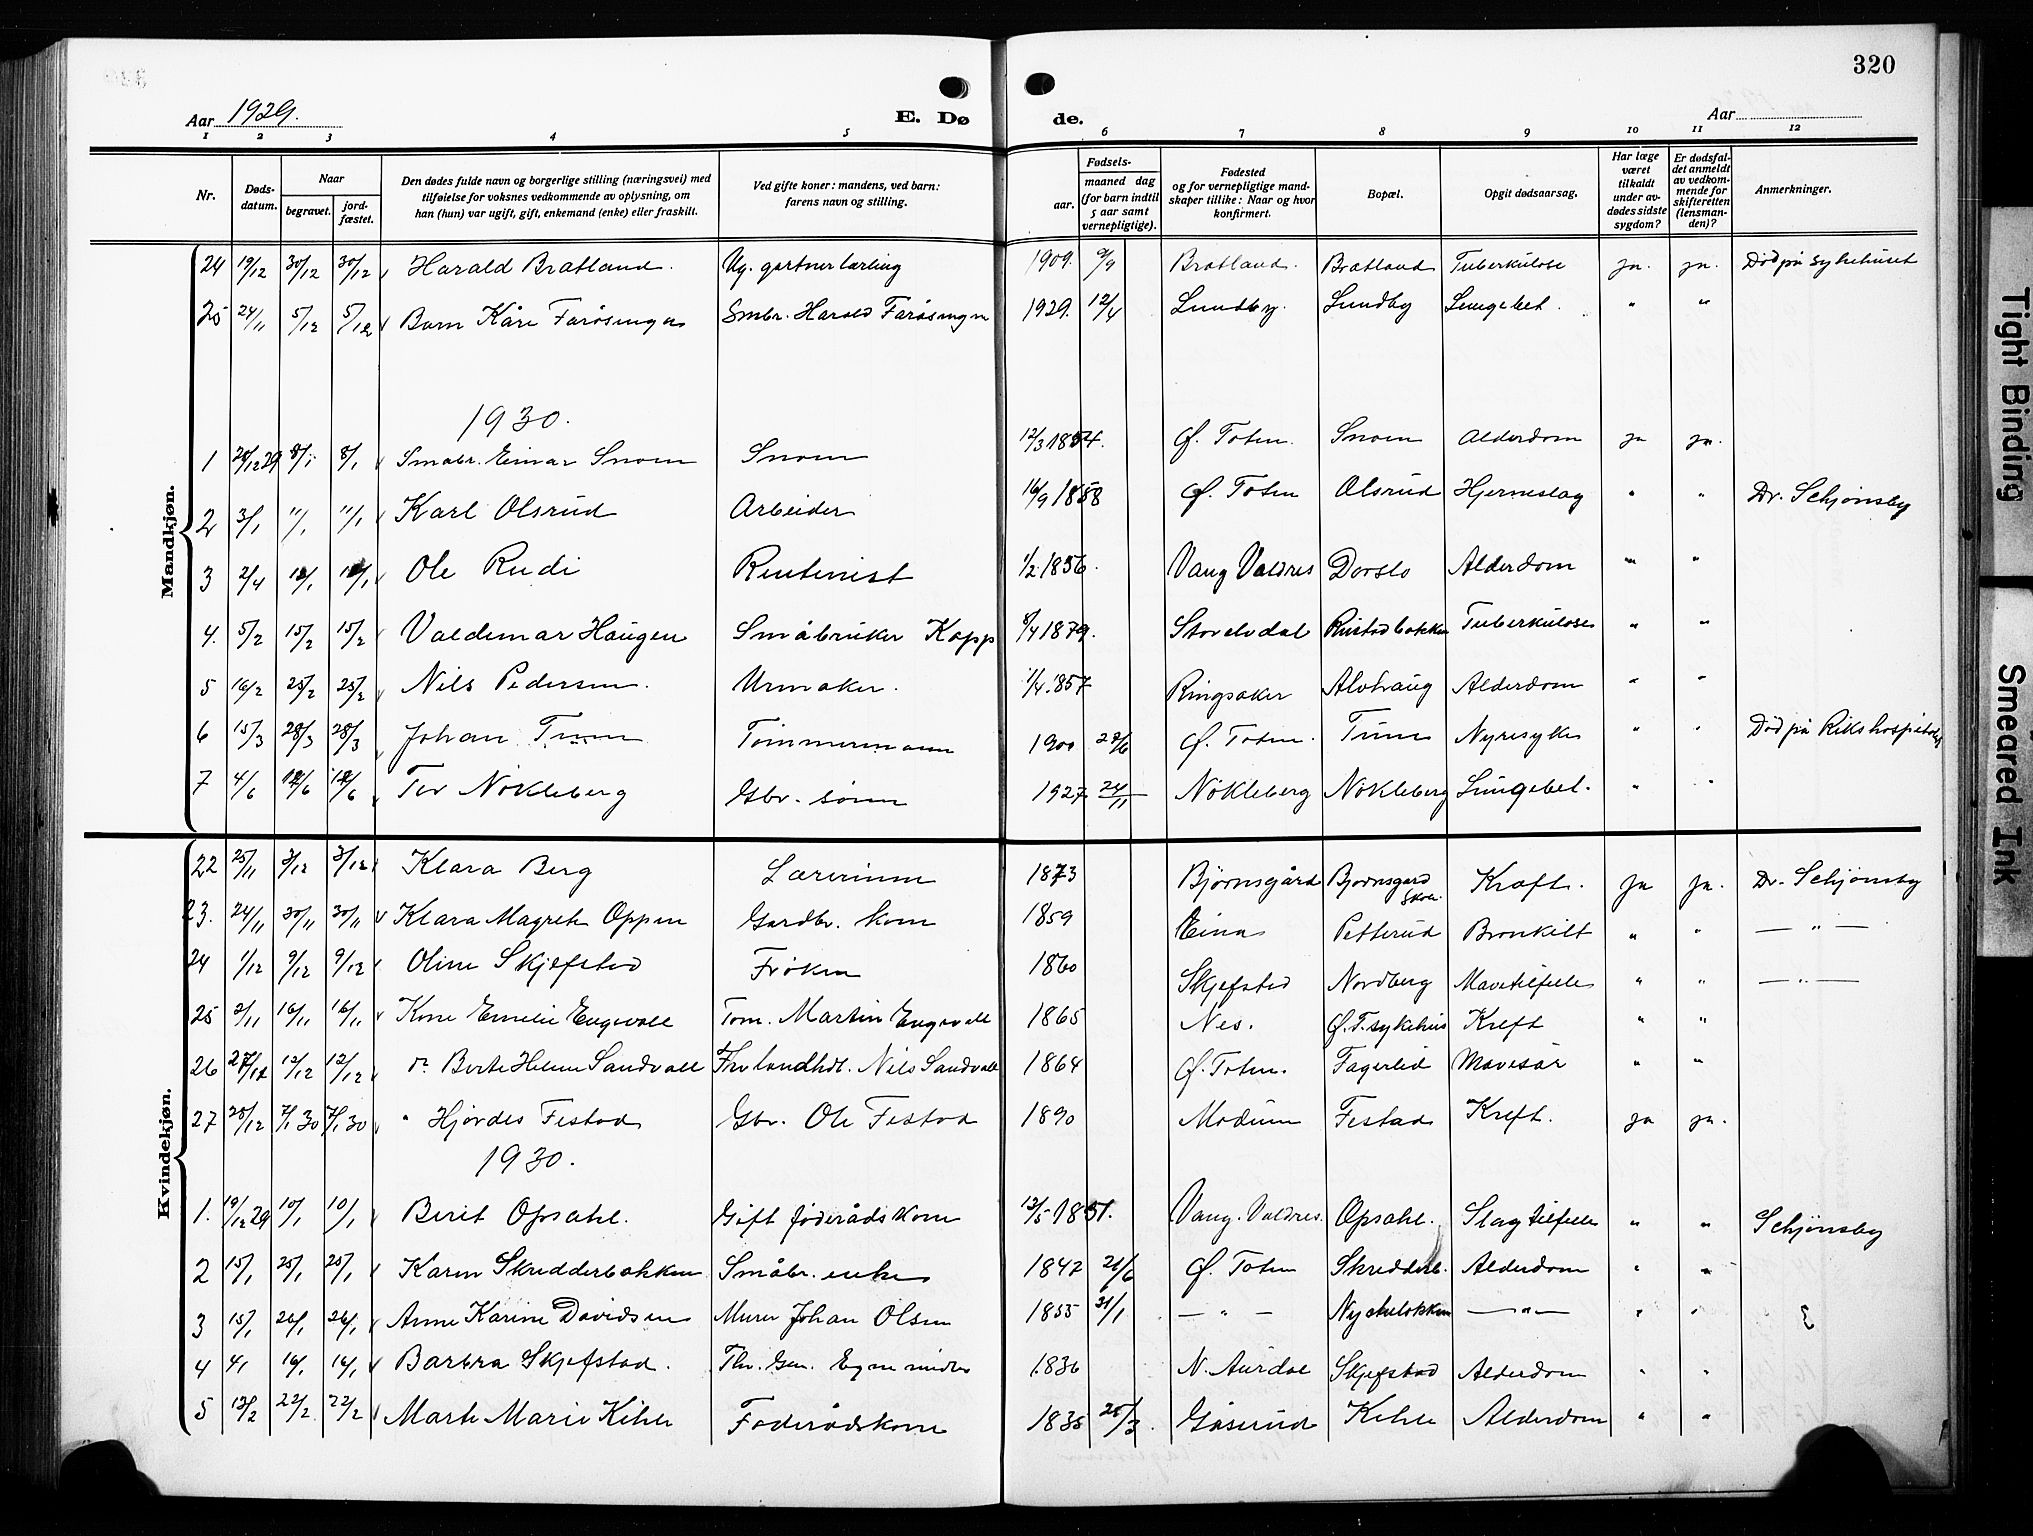 320
Aar 1929.
E. Døde.
Aar
1 2 3 4 5 6 7 8 9 10 11 12
Nr.
Døds-datum.
Naar
begravet.
jord-fæstet.
Den dødes fulde navn og borgerlige stilling (næringsvei) med
tilføielse for voksnes vedkommende av oplysning, om
han (hun) var ugift, gift, enkemand (enke) eller fraskilt.
Ved gifte koner: mandens, ved barn:
farens navn og stilling.
Fødsels-
aar.
maaned dag
(for barn indtil
5 aar samt
vernepligtige).
Fødested
og for vernepligtige mand-
skaper tillike: Naar og hvor
konfirmert.
Bopæl.
Opgit dødsaarsag.
Har læge
været
tilkaldt
under av-
dødes sidste
sygdom?
Er dødsfal-
det anmeldt
av vedkom-
mende for
skifteretten
(lensman-
den)?
Anmerkninger.
Mandkjøn.
24 19/12 30/12 30/12 Harald Bratland. Ug. gartnerlærling 1909. 9/9 Bratland. Bratland Tuberkulose ja. ja. Død på sykehuset
25 24/11 5/12 5/12 Barn Kåre Farösengen Smbr. Harald Farösengen 1929. 12/4 Lundby. Lundby Lungebet. " "
1930.
1 28/12 29 8/1 8/1 Småbr. Einar Snoen Snoen 12/3 1854. Ø. Toten. Snoen Alderdom ja ja.
2 3/1 11/1 11/1 Karl Olsrud Arbeider 16/9 1858 Ø. Toten Olsrud Hjerneslag " " Dr. Schjønsby
3 2/4 12/1 12/1 Ole Rudi Rentenist 1/2 1856. Vang Valdres Dorslo Alderdom " "
4. 5/2 15/2 15/2 Valdemar Haugen Småbruker Kapp 8/4 1879. Storelvdal Rustadbakken Tuberkulose " "
5 16/2 25/2 25/2 Nils Pedersen. Urmaker. 1/4 1857 Ringsaker Alvhaug Alderdom " "
6 15/3 28/3 28/3 Johan Tune Tömmermann 1900 27/6 Ø. Toten. Tune Nyresyke " " Død på Rikshospitalet
7 4/6 12/6 12/6 Tor Nökleberg Gbr. sönn 1927 24/11 Nökleberg Nökleberg Lungebet. " "
Kvindekjøn.
22 25/11 3/12 3/12 Klara Berg Lærerinne 1873 Bjørnsgård Bjørnsgard skole. Kræft. ja ja. Dr. Schjønsby
23. 24/11 30/11 30/11 Klara Magrete Oppen Gardbr. kone 1859 Eina Petterud Bronkitt " " — " —
24 1/12 9/12 9/12 Oline Skjefstad Frøken 1860 Skjefstad Nordberg Mavetilfelle " " — " —
25 3/11 16/11 16/11 Kone Emelie Engevall Tom. Martin Engevall 1865 Nes. Ø.T. sykehus Kreft " "
26 27/12 12/12 12/12 do Berte Helene Sandvall Fhv landhdl. Nils Sandvall 1864 Ø. Toten. Fagerlid Mavesår " "
27 28/12 7/1 30 7/1 30 " Hjördes Festad Gbr. Ole Festad 1890 Modum Festad Kreft. ja ja.
1930.
1. 19/12 29 10/1 10/1 Berit Opsahl. Gift föderådskone 12/5 1851. Vang. Valdres. Opsahl. Slagtilfelle " " Schjønsby
2 15/1 25/1 25/1 Karen Skredderbakken Småbr. enke 1847 21/6 Ø. Toten Skredderb. Alderdom " "
3 15/1 26/1 26/1 Anne Karine Davidsen Murer Johan Olsen 1855 31/1 — " — — " — " "
4 4/1 16/1 16/1 Barbra Skjefstad. 1836 N. Aurdal Skjefstad Alderdom " "
5 13/2 22/2 22/2 Marte Marie Kihle Föderådskone 1835 25/3 Gåserud Kihle Alderdom " "
Tight Binding
Smeared Ink